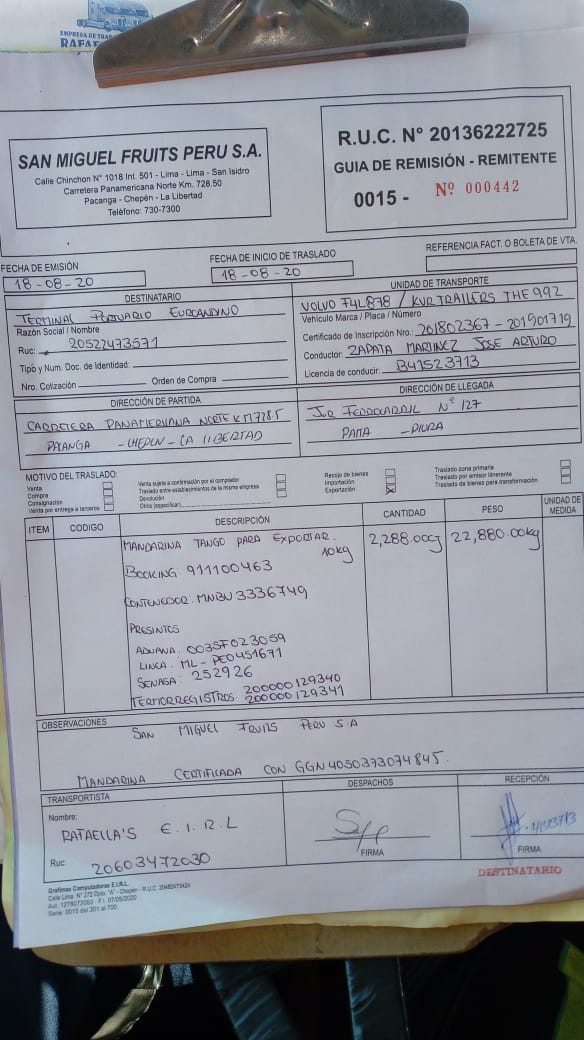 EMPRESA DE TRA
RAFAE
SAN MIGUEL FRUITS PERU S.A.
Calle Chinchon N° 1018 Int. 501 - Lima - Lima - San Isidro
Carretera Panamericana Norte Km. 728.50
Pacanga - Chepén - La Libertad
Teléfono: 730-7300
R.U.C. N° 20136222725
GUIA DE REMISIÓN - REMITENTE
0015 - Nº 000442
FECHA DE EMISIÓN
18-08-20
FECHA DE INICIO DE TRASLADO
18-08-20
REFERENCIA FACT. O BOLETA DE VTA.
DESTINATARIO
TERMINAL PORTUARIO EUROANDINO
Razón Social / Nombre
Ruc: 20522473571
Tipo y Num. Doc. de Identidad:
Nro. Cotización Orden de Compra
UNIDAD DE TRANSPORTE
VOLVO F4L878 / KURTRAILERS THE992
Vehículo Marca / Placa / Número
Certificado de Inscripción Nro.: 201802367 - 201901719
Conductor: ZAPATA MARTINEZ JOSE ARTURO
Licencia de conducir: B41523713
DIRECCIÓN DE PARTIDA
CARRETERA PANAMERICANA NORTE KM728.5
PACANGA - CHEPEN - LA LIBERTAD
DIRECCIÓN DE LLEGADA
JR FERROCARRIL N° 127
PAITA - PIURA
MOTIVO DEL TRASLADO:
Venta
Compra
Consignación
Venta por entrega a terceros
Venta sujeta a confirmación por el comprador
Traslado entre establecimientos de la misma empresa
Devolución
Otros (especificar)
Recojo de bienes
Importación
Exportación X
Traslado zona primaria
Traslado por emisor itinerante
Traslado de bienes para transformación
ITEM CODIGO DESCRIPCIÓN CANTIDAD PESO UNIDAD DE MEDIDA
MANDARINA TANGO PARA EXPORTAR. 2,288.00CJ 22,880.00kg
10kg
BOOKING 911100463
CONTENEDOR: MNBU 3336749
PRESINTOS
ADUANA: 003SF023059
LINEA: ML-PE0451671
SENASA: 252926
TERMORREGISTROS: 200000129340
200000129341
OBSERVACIONES
SAN MIGUEL FRUITS PERU S.A
MANDARINA CERTIFICADA CON GGN 4050373074845.
TRANSPORTISTA
Nombre:
RAFAELLA'S E.I.R.L
Ruc 20603472030
DESPACHOS
FIRMA
RECEPCIÓN
FIRMA
DESTINATARIO
Grafimas Computadoras E.I.R.L.
Calle Lima N° 272 Dpto. "A" - Chepén - R.U.C. 20482473424
Aut: 1278072063 - F.I. 07/05/2020
Serie: 0015 del 301 al 700